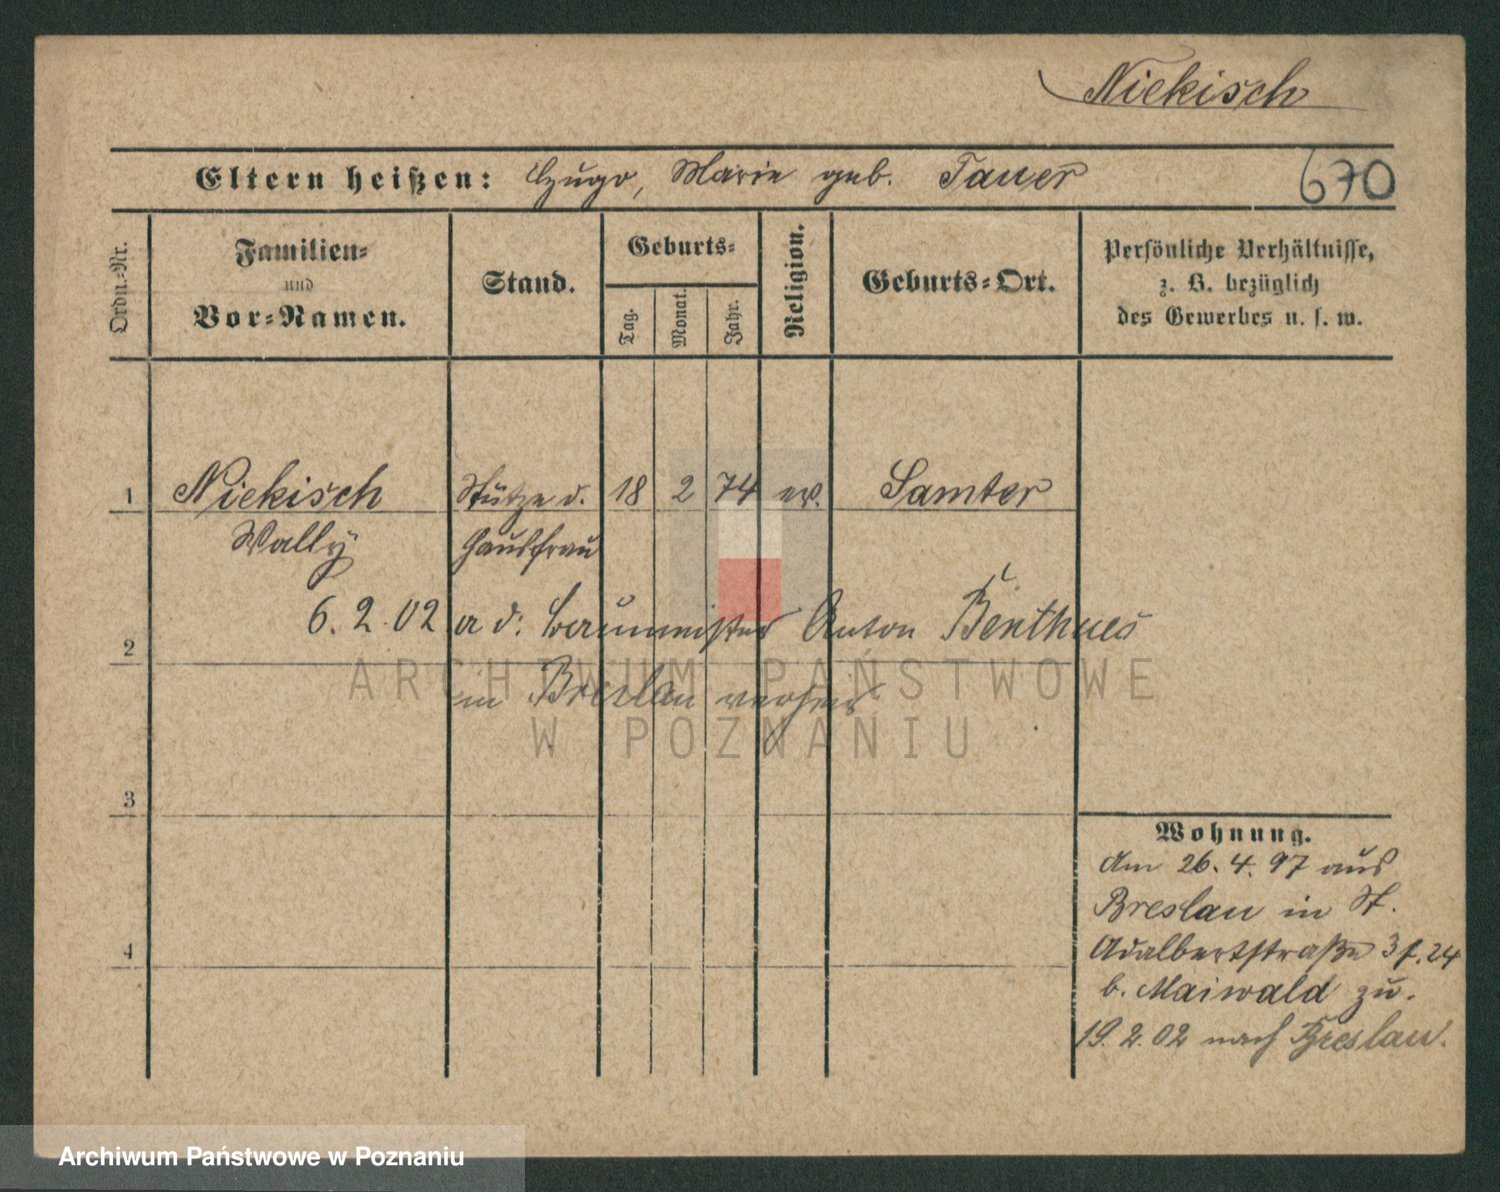 Niekisch
Eltern heißen: Hugo, Marie geb. Tauer
670
Ordn.-Nr.
Familien-
und
Vor-Namen.
Stand.
Geburts-
Tag.
Monat.
Jahr.
Religion.
Geburts-Ort.
Persönliche Verhältnisse,
z. B. bezüglich
des Gewerbes u. s. w.
1 Niekisch Stütze d. 18 2 74 ev. Samter
Wally Hausfrau
6.2.02 a d: Baumeister Anton
2
in Breslau verheir
3
4
Wohnung.
Am 26.4.97 aus
Breslau in St.
Adalbertstraße 3 f. 24
b. Maiwald zu.
19.2.02 nach Breslau.
ARCHIWUM PAŃSTWOWE
W POZNANIU
Archiwum Państwowe w Poznaniu